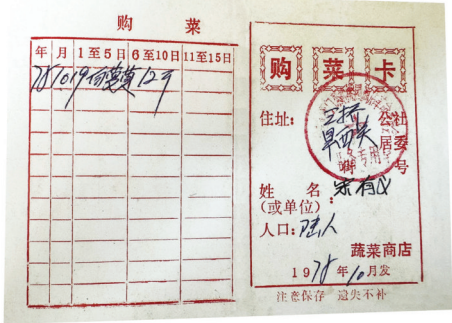 购 菜
年 月 1至5日 6至10日 11至15日
78 10 19 12斤
购菜卡
住址: 公社
居委
号
姓 名: 宋有义
(或单位):
人口: 陆人
蔬菜商店
1978年10月发
注意保存 遗失不补